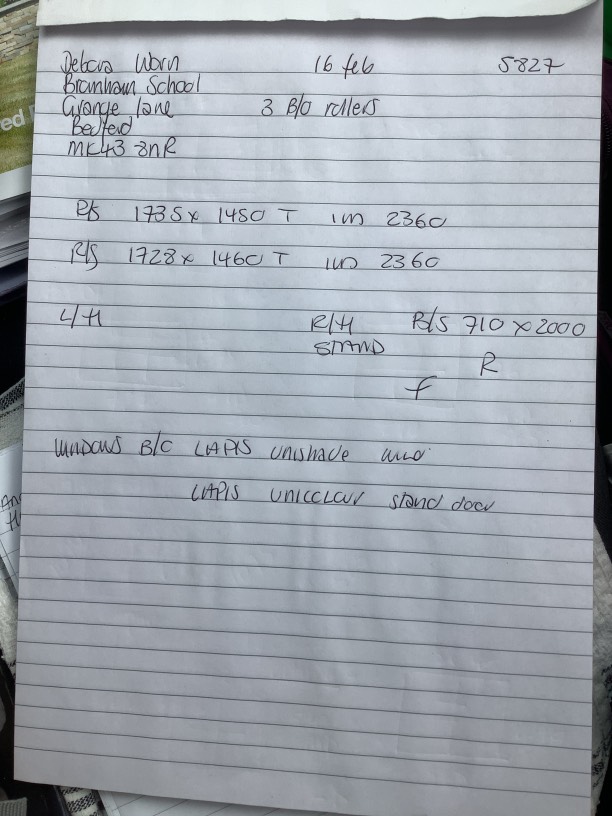 Debora Worn 16 feb 5827
Bromham School
Grange lane 3 B/o rollers
Bedford
MK43 8NR
R/S 1735 x 1450 T 2360
R/S 1728 x 1460 T 2360
L/H R/H R/S 710 x 2000
STAND R
f
WINDOWS B/O LAPIS unishade
LAPIS UNICOLOUR stand door